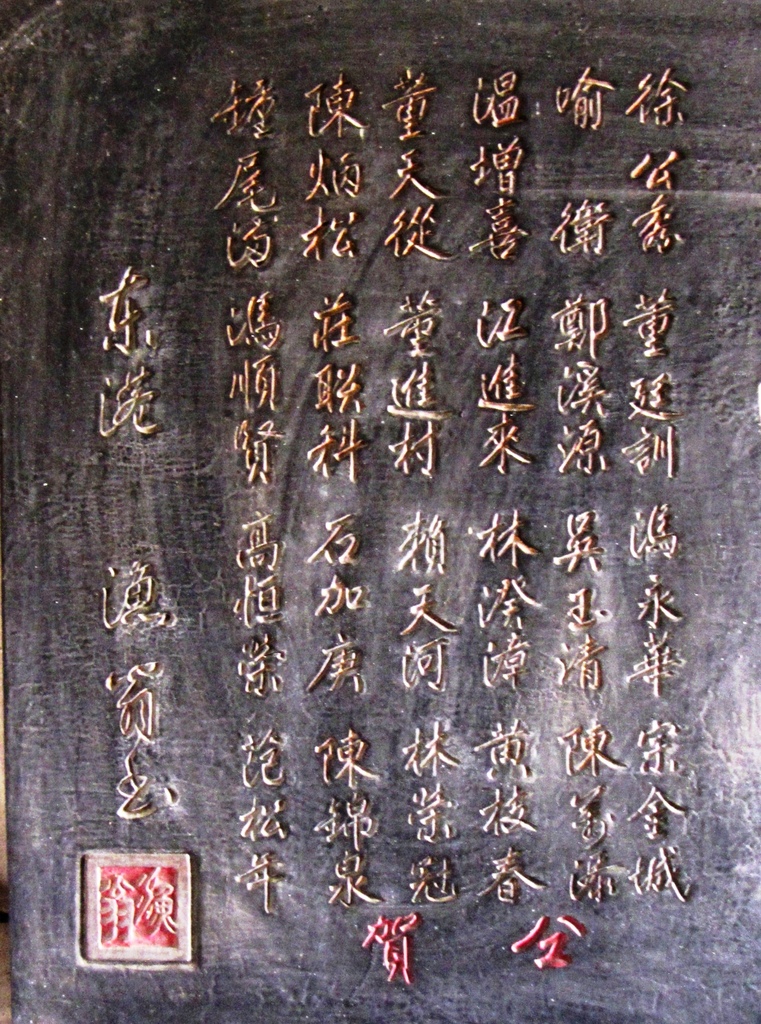 徐公喬 董廷訓 馮永華 宗金城
喻衛 鄭溪源 吳玉清 陳萬添
温增喜 江進來 林溪漳 黃枝春
董天從 董進村 賴天河 林榮冠
陳炳松 莊联科 石加庚 陳錦泉
鍾尾滿 馮順賢 高恒榮 范松年
公賀
东港 漁翁书
漁翁